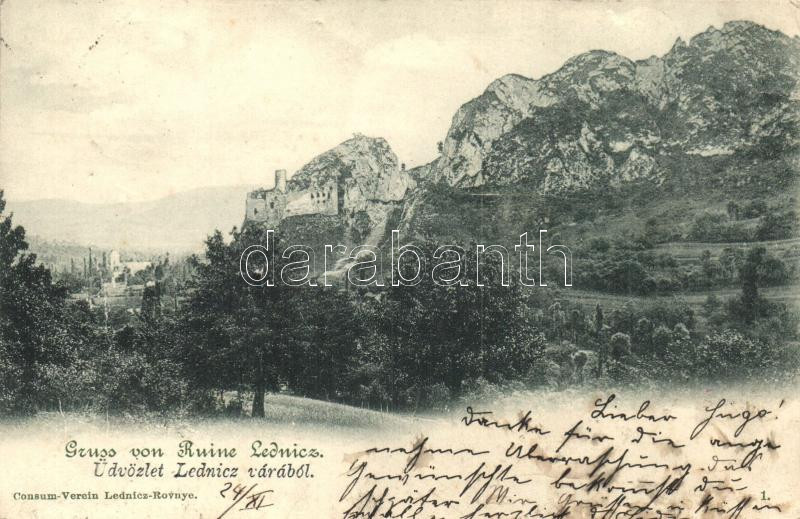 darabanth
Gruss von Ruine Lednicz.
Üdvözlet Lednicz várából.
Consum-Verein Lednicz-Rovnye.
24/XI
Lieber Hugo!
danke für die ange
nehme Überraschung das
Gewünschte bekomst du
später Wir küssen
herzlich
1.